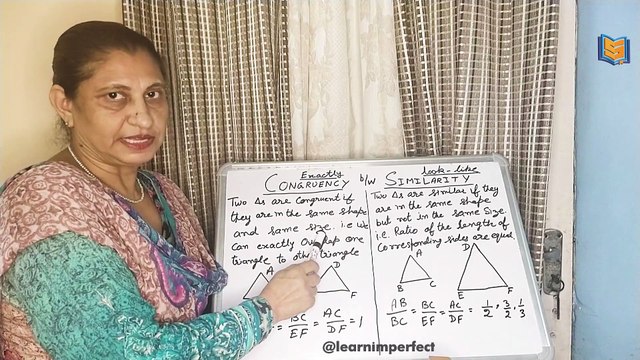 Exactly
CONGRUENCY
b/w
look-like
SIMILARITY
Two Δs are congruent if
they are in the same shape
and same size. i.e we
can exactly overlap one
triangle to other triangle
A
D
F
BC/EF = AC/DF = 1
Two Δs are similar if they
are in the same shape
but not in the same size
i.e. Ratio of the length of
corresponding sides are equal
A
B C
D
E F
AB/BC = BC/EF = AC/DF = 1/2, 3/2, 1/3
@learnimperfect